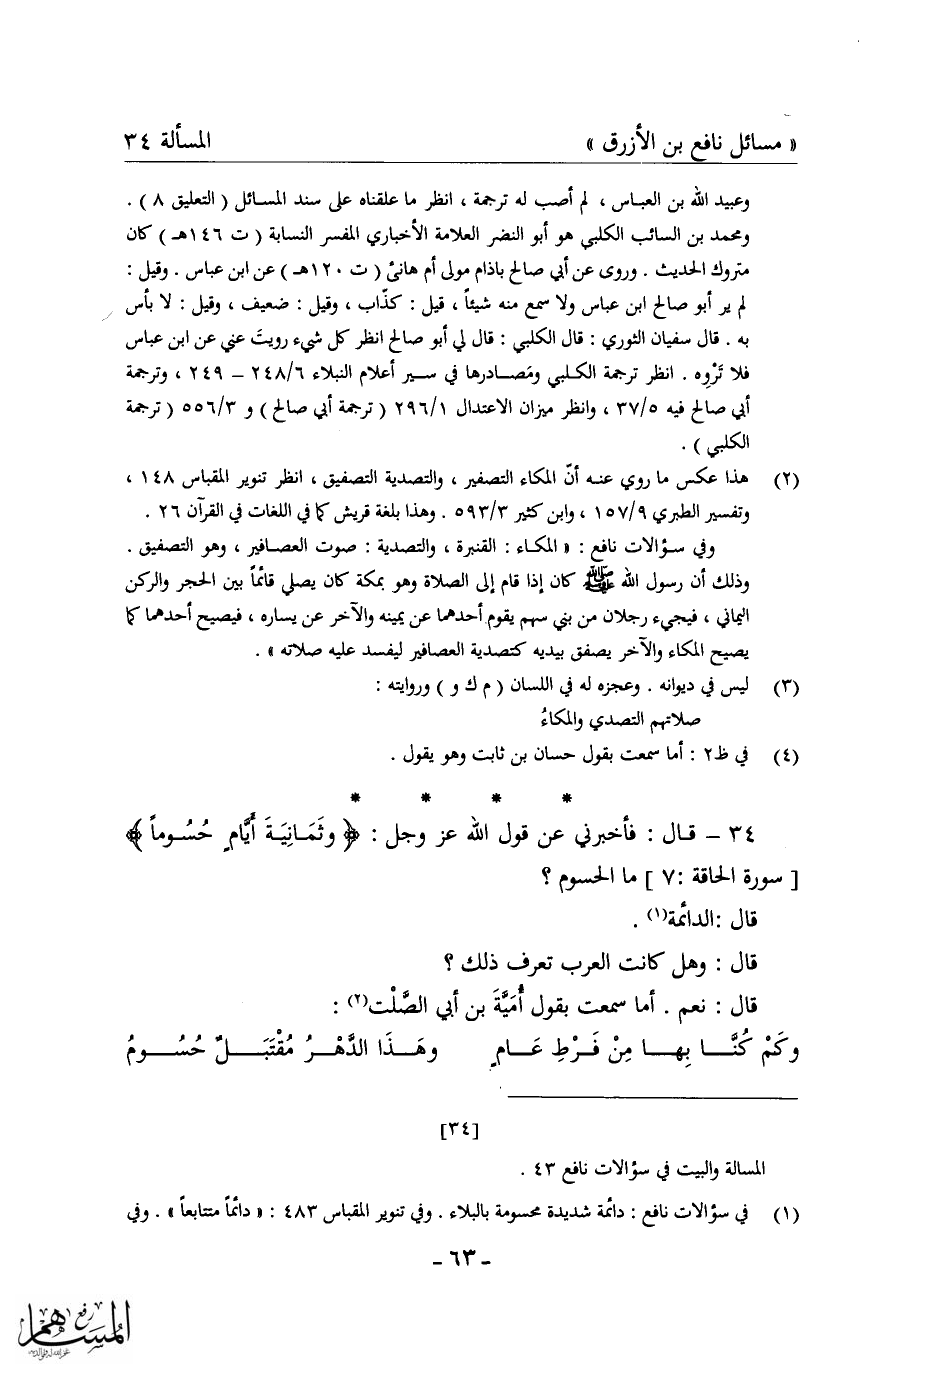 « مسائل نافع بن الأزرق » المسألة ٣٤
وعبيد الله بن العباس ، لم أصب له ترجمة ، انظر ما علقناه على سند المسائل ( التعليق ٨ ) .
ومحمد بن السائب الكلبي هو أبو النضر العلامة الأخباري المفسر النسابة ( ت ١٤٦هـ ) كان
متروك الحديث . وروى عن أبي صالح باذام مولى أم هانئ ( ت ١٢٠هـ ) عن ابن عباس . وقيل :
لم ير أبو صالح ابن عباس ولا سمع منه شيئاً ، قيل : كذّاب ، وقيل : ضعيف ، وقيل : لا بأس
به . قال سفيان الثوري : قال الكلبي : قال لي أبو صالح انظر كل شيء رويتَ عني عن ابن عباس
فلا تَرْوِه . انظر ترجمة الكلبي ومَصادرها في سير أعلام النبلاء ٢٤٨/٦ – ٢٤٩ ، وترجمة
أبي صالح فيه ٣٧/٥ ، وانظر ميزان الاعتدال ٢٩٦/١ ( ترجمة أبي صالح ) و ٥٥٦/٣ ( ترجمة
الكلبي ) .
(٢) هذا عكس ما روي عنه أنّ المكاء التصفير ، والتصدية التصفيق ، انظر تنوير المقباس ١٤٨ ،
وتفسير الطبري ١٥٧/٩ ، وابن كثير ٥٩٣/٣ . وهذا بلغة قريش كما في اللغات في القرآن ٢٦ .
وفي سؤالات نافع : « المكاء : القنبرة ، والتصدية : صوت العصافير ، وهو التصفيق .
وذلك أن رسول الله ﷺ كان إذا قام إلى الصلاة وهو بمكة كان يصلي قائماً بين الحجر والركن
اليماني ، فيجيء رجلان من بني سهم يقوم أحدهما عن يمينه والآخر عن يساره ، فيصيح أحدهما كما
يصيح المكاء والآخر يصفق بيديه كتصدية العصافير ليفسد عليه صلاته » .
(٣) ليس في ديوانه . وعجزه له في اللسان ( م ك و ) وروايته :
صلاتهم التصدي والمكاءُ
(٤) في ظ٢ : أما سمعت بقول حسان بن ثابت وهو يقول .
* * * *
٣٤ – قال : فأخبرني عن قول الله عز وجل : ﴿ وثَمَانِيَةَ أَيَّامٍ حُسُوماً ﴾
[ سورة الحاقة :٧ ] ما الحسوم ؟
قال :الدائمة(١) .
قال : وهل كانت العرب تعرف ذلك ؟
قال : نعم . أما سمعت بقول أُمَيَّةَ بن أبي الصَّلْت(٢) :
وكَمْ كُنَّا بِها مِنْ فَرْطِ عَامٍ وهَذَا الدَّهْرُ مُقْتَبَلٌ حُسُومُ
[٣٤]
المسالة والبيت في سؤالات نافع ٤٣ .
(١) في سؤالات نافع : دائمة شديدة محسومة بالبلاء . وفي تنوير المقباس ٤٨٣ : « دائماً متتابعاً » . وفي
- ٦٣ -